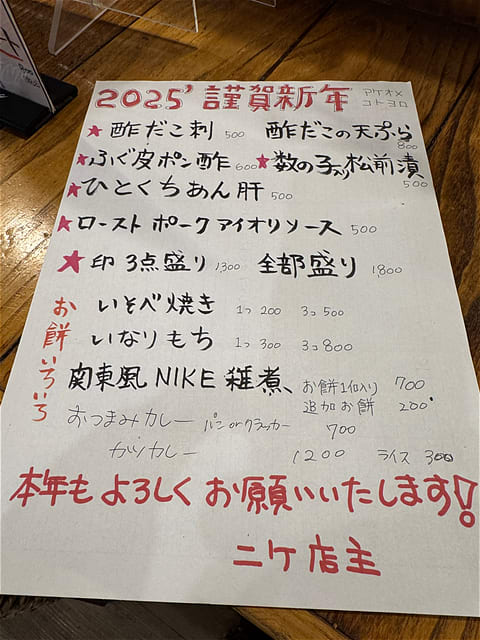 2025' 謹賀新年 アケオメ
コトヨロ
★ 酢だこ刺 500 酢だこの天ぷら 800
★ ふぐ皮ポン酢 600 ★ 数の子入り松前漬 500
★ ひとくちあん肝 500
★ ローストポークアイオリソース 500
★ 印3点盛り 1,300 全部盛り 1,800
お餅いろいろ
いそべ焼き 1つ 200 3コ 500
いなりもち 1つ 300 3コ 800
関東風NIKE雑煮、お餅1個入り 700
追加お餅 200
おつまみカレー パンorクラッカー 700
カツカレー 1200 ライス 300
本年もよろしくお願いいたします!
ニケ店主